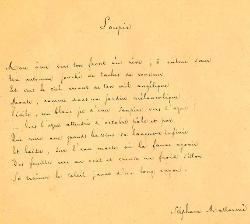 Soupir
Mon âme vers ton front où rêve, ô calme sœur
Un automne jonché de taches de rousseur
Et vers le ciel errant de ton œil angélique
Monte, comme dans un jardin mélancolique
Fidèle, un blanc jet d'eau soupire vers l'azur
— Vers l'azur attendri d'octobre pâle et pur
Qui mire aux grands bassins sa langueur infinie
Et laisse, sur l'eau morte où la fauve agonie
Des feuilles erre au vent et creuse un froid sillon
Se traîner le soleil jaune d'un long rayon.
Stéphane Mallarmé